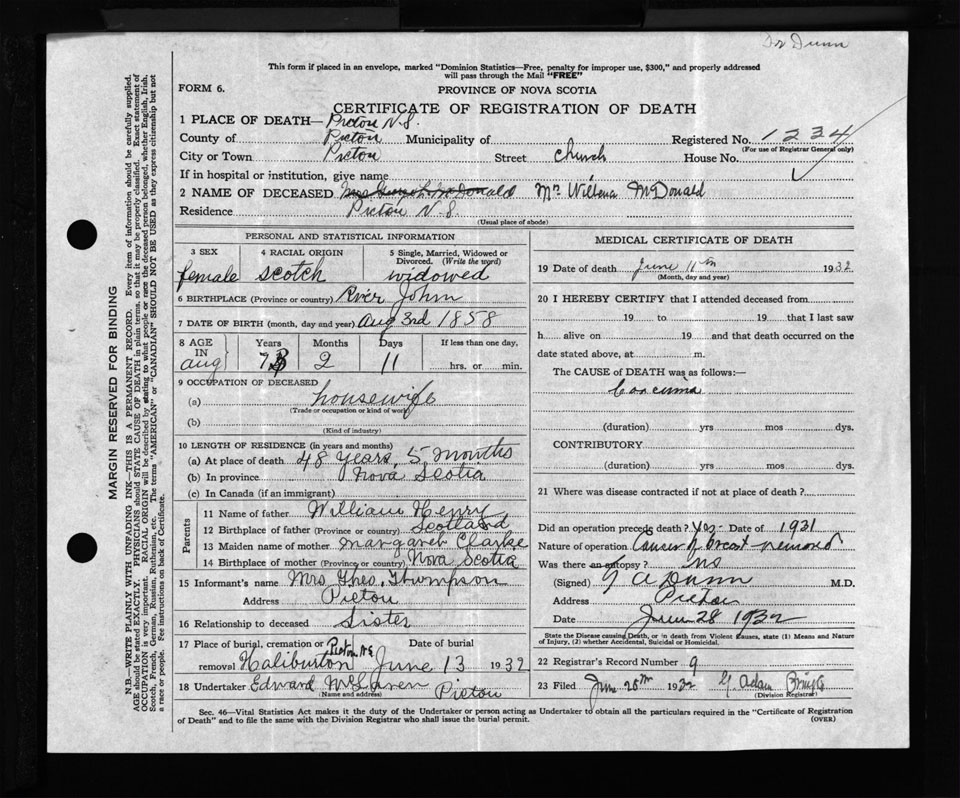 Dr Dunn
This form if placed in an envelope, marked "Dominion Statistics—Free, penalty for improper use, $300," and properly addressed
will pass through the Mail "FREE"
FORM 6.
PROVINCE OF NOVA SCOTIA
CERTIFICATE OF REGISTRATION OF DEATH
1 PLACE OF DEATH— Pictou N.S.
County of Pictou Municipality of Registered No. 1234
(For use of Registrar General only)
City or Town Pictou Street Church House No.
If in hospital or institution, give name
2 NAME OF DECEASED McDonald Mrs Willena McDonald
Residence Pictou N.S.
(Usual place of abode)
PERSONAL AND STATISTICAL INFORMATION
3 SEX female
4 RACIAL ORIGIN Scotch
5 Single, Married, Widowed or
Divorced. (Write the word)
widowed
6 BIRTHPLACE (Province or country) River John
7 DATE OF BIRTH (month, day and year) Aug 3rd 1858
8 AGE IN Years Months Days If less than one day,
aug 73 2 11 hrs. or min.
9 OCCUPATION OF DECEASED
(a) housewife
(Trade or occupation or kind of work)
(b)
(Kind of industry)
10 LENGTH OF RESIDENCE (in years and months)
(a) At place of death 48 Years, 5 months
(b) In province Nova Scotia
(c) In Canada (if an immigrant)
Parents
11 Name of father William Henry
12 Birthplace of father (Province or country) Scotland
13 Maiden name of mother Margaret Clarke
14 Birthplace of mother (Province or country) Nova Scotia
15 Informant's name Mrs Theo. Thompson
Address Pictou
16 Relationship to deceased Sister
17 Place of burial, cremation or Pictou N.S. Date of burial
removal Haliburton June 13 1932
18 Undertaker Edward McLaren Pictou
(Name and address)
MEDICAL CERTIFICATE OF DEATH
19 Date of death June 11th 1932
(Month, day and year)
20 I HEREBY CERTIFY that I attended deceased from
19 to 19 that I last saw
h alive on 19 and that death occurred on the
date stated above, at m.
The CAUSE of DEATH was as follows:—
(duration) yrs mos dys.
CONTRIBUTORY
(duration) yrs mos dys.
21 Where was disease contracted if not at place of death?
Did an operation precede death? Yes Date of 1931
Nature of operation Cancer of breast removed
Was there an autopsy? no
(Signed) A Dunn M.D.
Address Pictou
Date June 28 1932
State the Disease causing Death, or in death from Violent Causes, state (1) Means and Nature
of Injury, (2) whether Accidental, Suicidal or Homicidal.
22 Registrar's Record Number 9
23 Filed June 20th 1932
(Division Registrar)
Sec. 46—Vital Statistics Act makes it the duty of the Undertaker or person acting as Undertaker to obtain all the particulars required in the "Certificate of Registration
of Death" and to file the same with the Division Registrar who shall issue the burial permit.
(OVER)
MARGIN RESERVED FOR BINDING
N.B.—WRITE PLAINLY WITH UNFADING INK—THIS IS A PERMANENT RECORD. Every item of information should be carefully supplied.
AGE should be stated EXACTLY. PHYSICIANS should STATE CAUSE OF DEATH in plain terms, so that it may be properly classified. Exact statement of
OCCUPATION is very important. RACIAL ORIGIN will be described by stating to what people or race the deceased person belonged, whether English, Irish,
Scotch, French, German, Russian, Ruthenian, etc. The terms "AMERICAN" or "CANADIAN" SHOULD NOT BE USED as they express citizenship but not
a race or people. See instructions on back of Certificate.